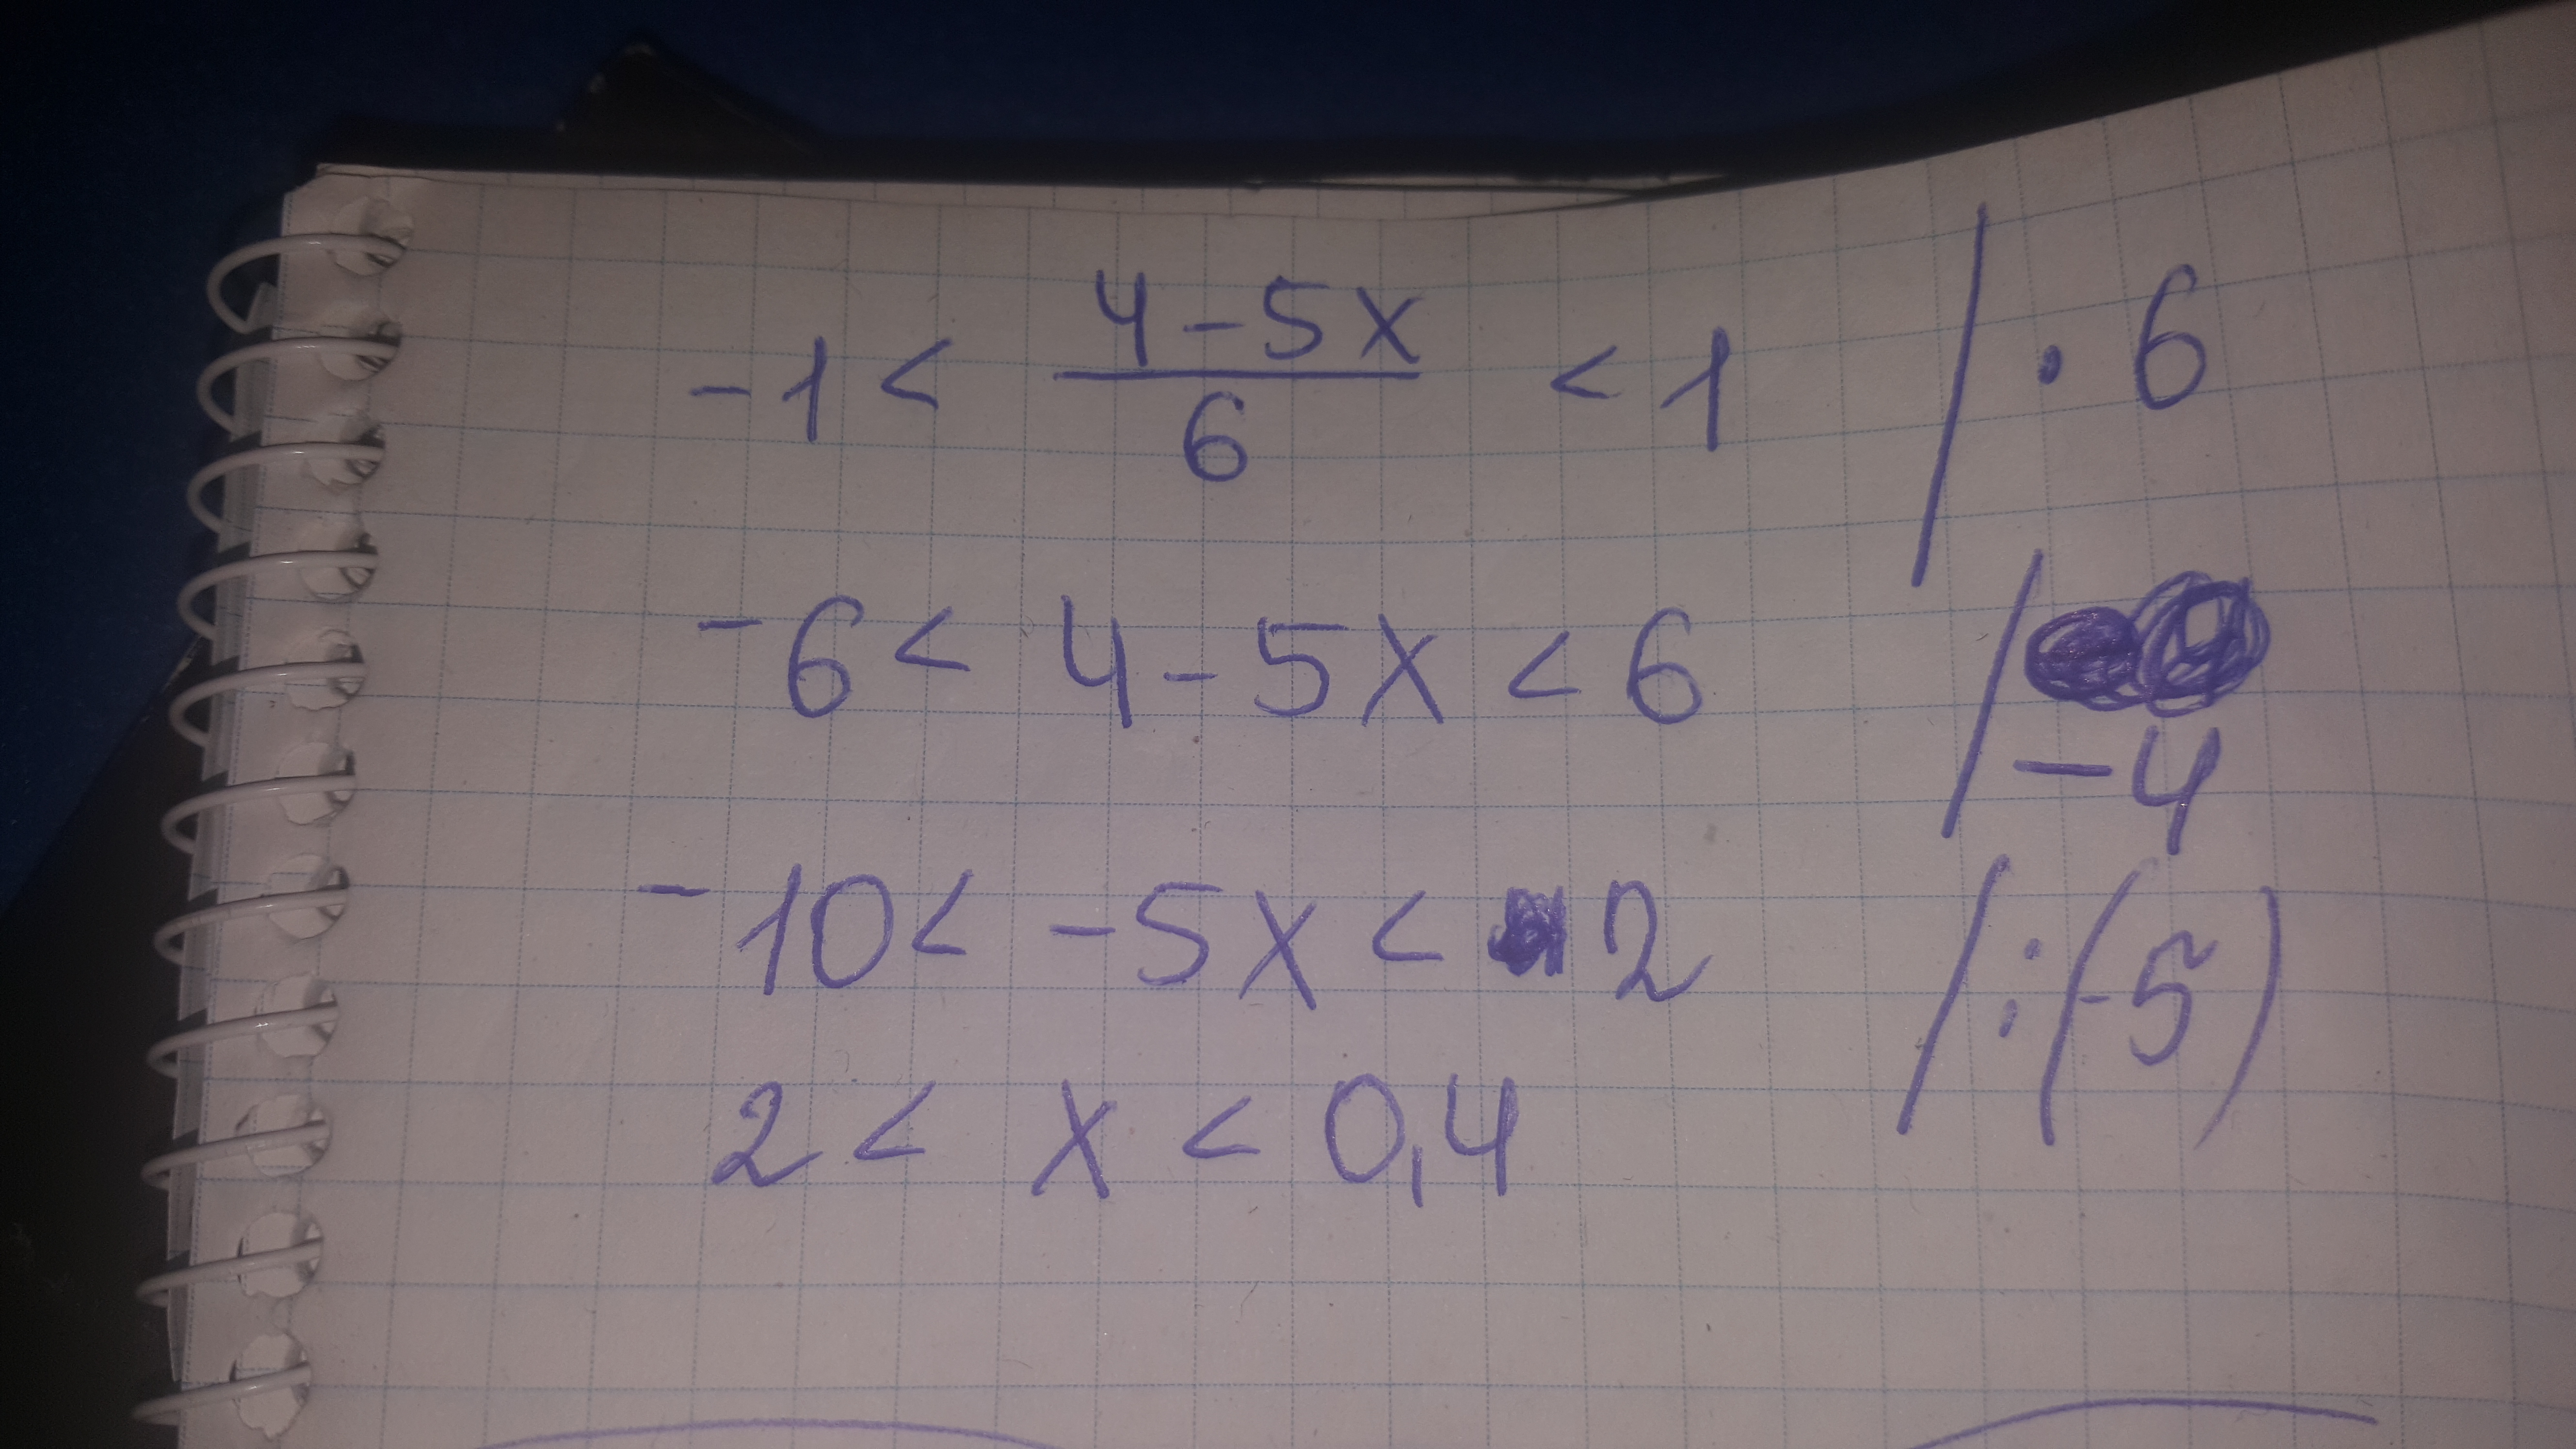 -1 < \frac{4-5x}{6} < 1 / · 6
-6 < 4-5x < 6 / -4
-10 < -5x < 2 / :(-5)
2 < x < 0,4